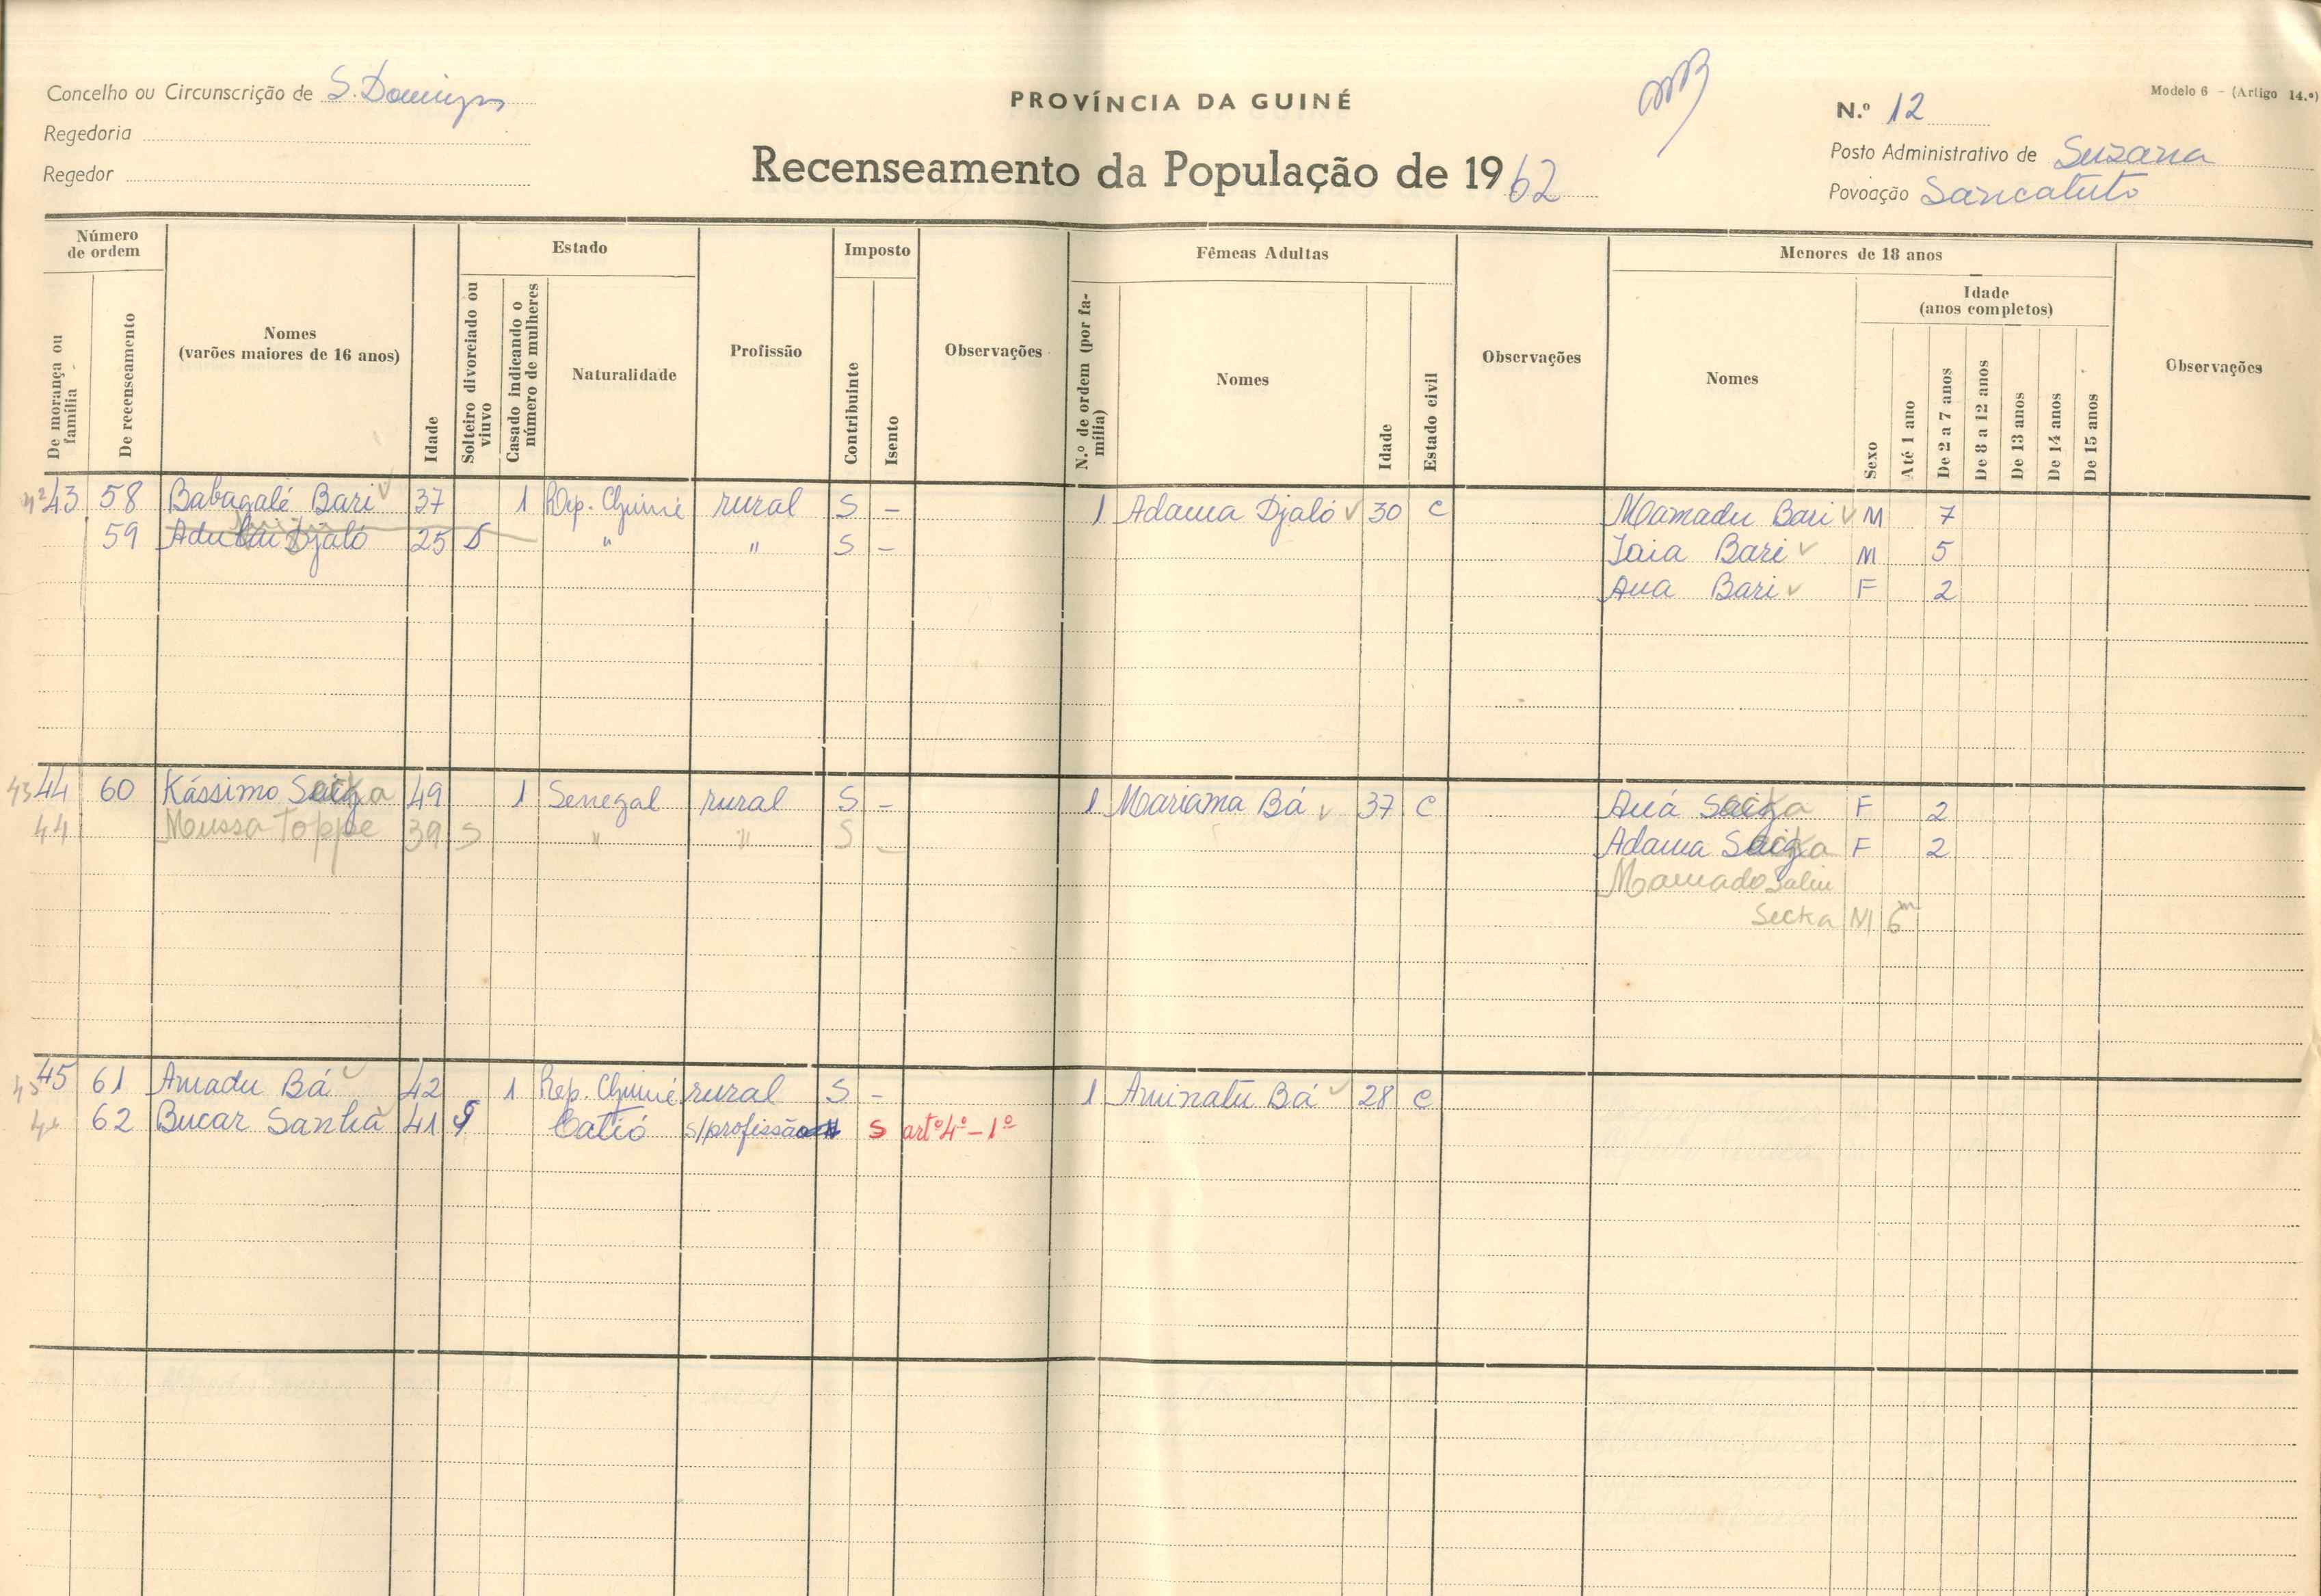 Concelho ou Circunscrição de S. Domingos
Regedoria
Regedor
PROVÍNCIA DA GUINÉ
Recenseamento da População de 1962
Modelo 6 - (Artigo 14.º)
N.º 12
Posto Administrativo de Suzana
Povoação Sancatuto
Número de ordem
De morança ou família
De recenseamento
Nomes
(varões maiores de 16 anos)
Idade
Estado
Solteiro divorciado ou viuvo
Casado indicando o número de mulheres
Naturalidade
Profissão
Imposto
Contribuinte
Isento
Observações
N.º de ordem (por família)
Fêmeas Adultas
Nomes
Idade
Estado civil
Observações
Menores de 18 anos
Nomes
Sexo
Idade
(anos completos)
Até 1 ano
De 2 a 7 anos
De 8 a 12 anos
De 13 anos
De 14 anos
De 15 anos
Observações
42 43 58 Babagalé Bari 37 1 Rep. Guiné rural S - 1 Adama Djaló 30 C Mamadu Bari M 7
59 Adulai Djaló 25 S " " S - Iaia Bari M 5
Aua Bari F 2
43 44 60 Kássimo Secka 49 1 Senegal rural S - 1 Mariama Bá 37 C Auá Secka F 2
44 Mussa Toppe 39 S " " S - Adama Secka F 2
Mamado Saliu
Secka M 6m
45 45 61 Amadu Bá 42 1 Rep. Guiné rural S - 1 Aminatu Bá 28 C
62 Bucar Sanhá 41 S Catió s/profissão S artº 4º - 1º